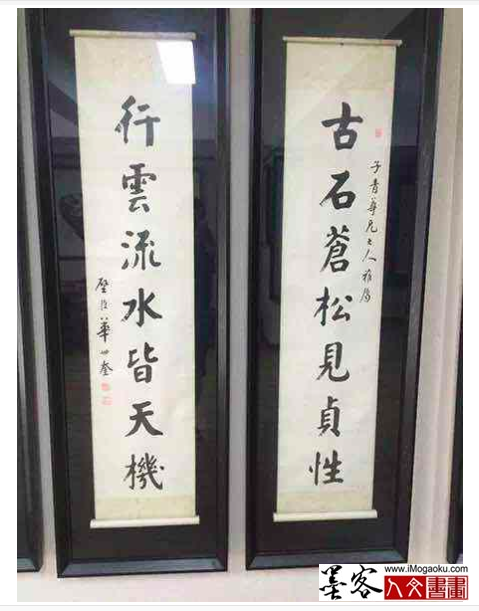 古石蒼松見貞性
子青尊兄大人雅屬
行雲流水皆天機
璧臣華世奎
墨客
www.iMogaoku.com
人文書畫